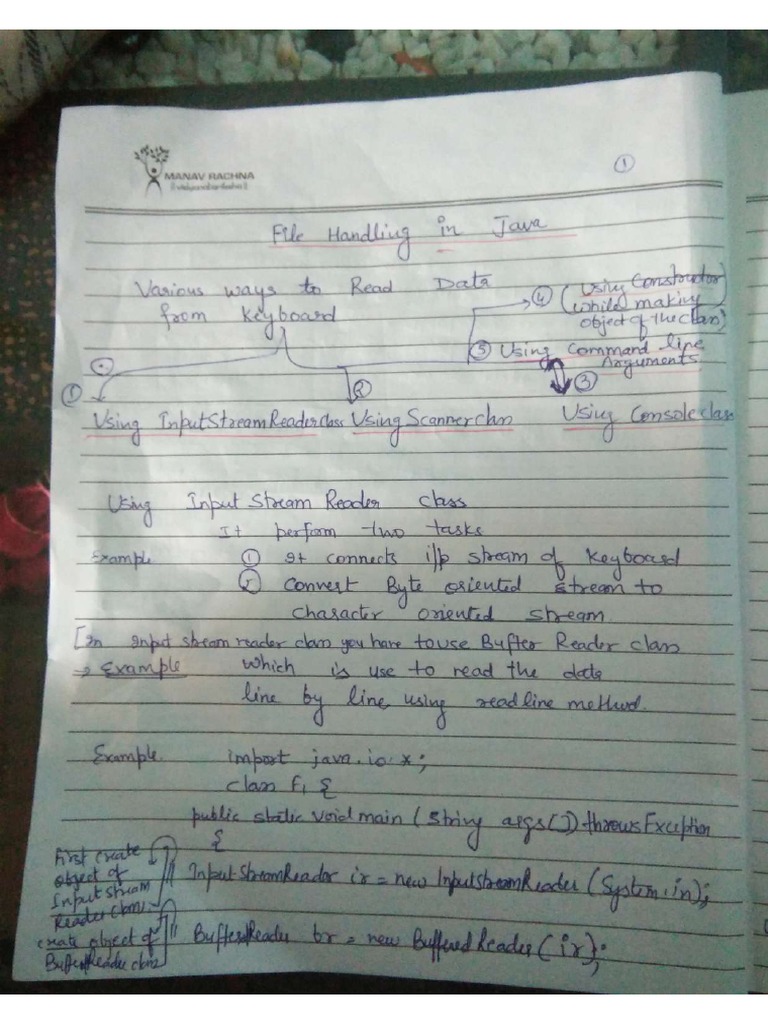 MANAV RACHNA
①
File Handling in Java
Various ways to Read Data
from Keyboard
④ (Using Constructor
(while making
object of the class)
⑤ Using Command line
Arguments
① Using InputStreamReader class
② Using Scanner class
③ Using Console class
Using Input Stream Reader class
It perform two tasks
Example ① It connects i/p stream of Keyboard
② Convert Byte oriented stream to
Character oriented stream
[In Input stream reader class you have to use Buffer Reader class
→ Example which is use to read the data
line by line using readline method.
Example import java.io.*;
class F1 {
public static void main (String args[]) throws Exception
{
First create
object of
InputStream
Reader class
InputStreamReader ir = new InputStreamReader (System.in);
create object of
BufferReader class
BufferReader br = new BufferedReader (ir);